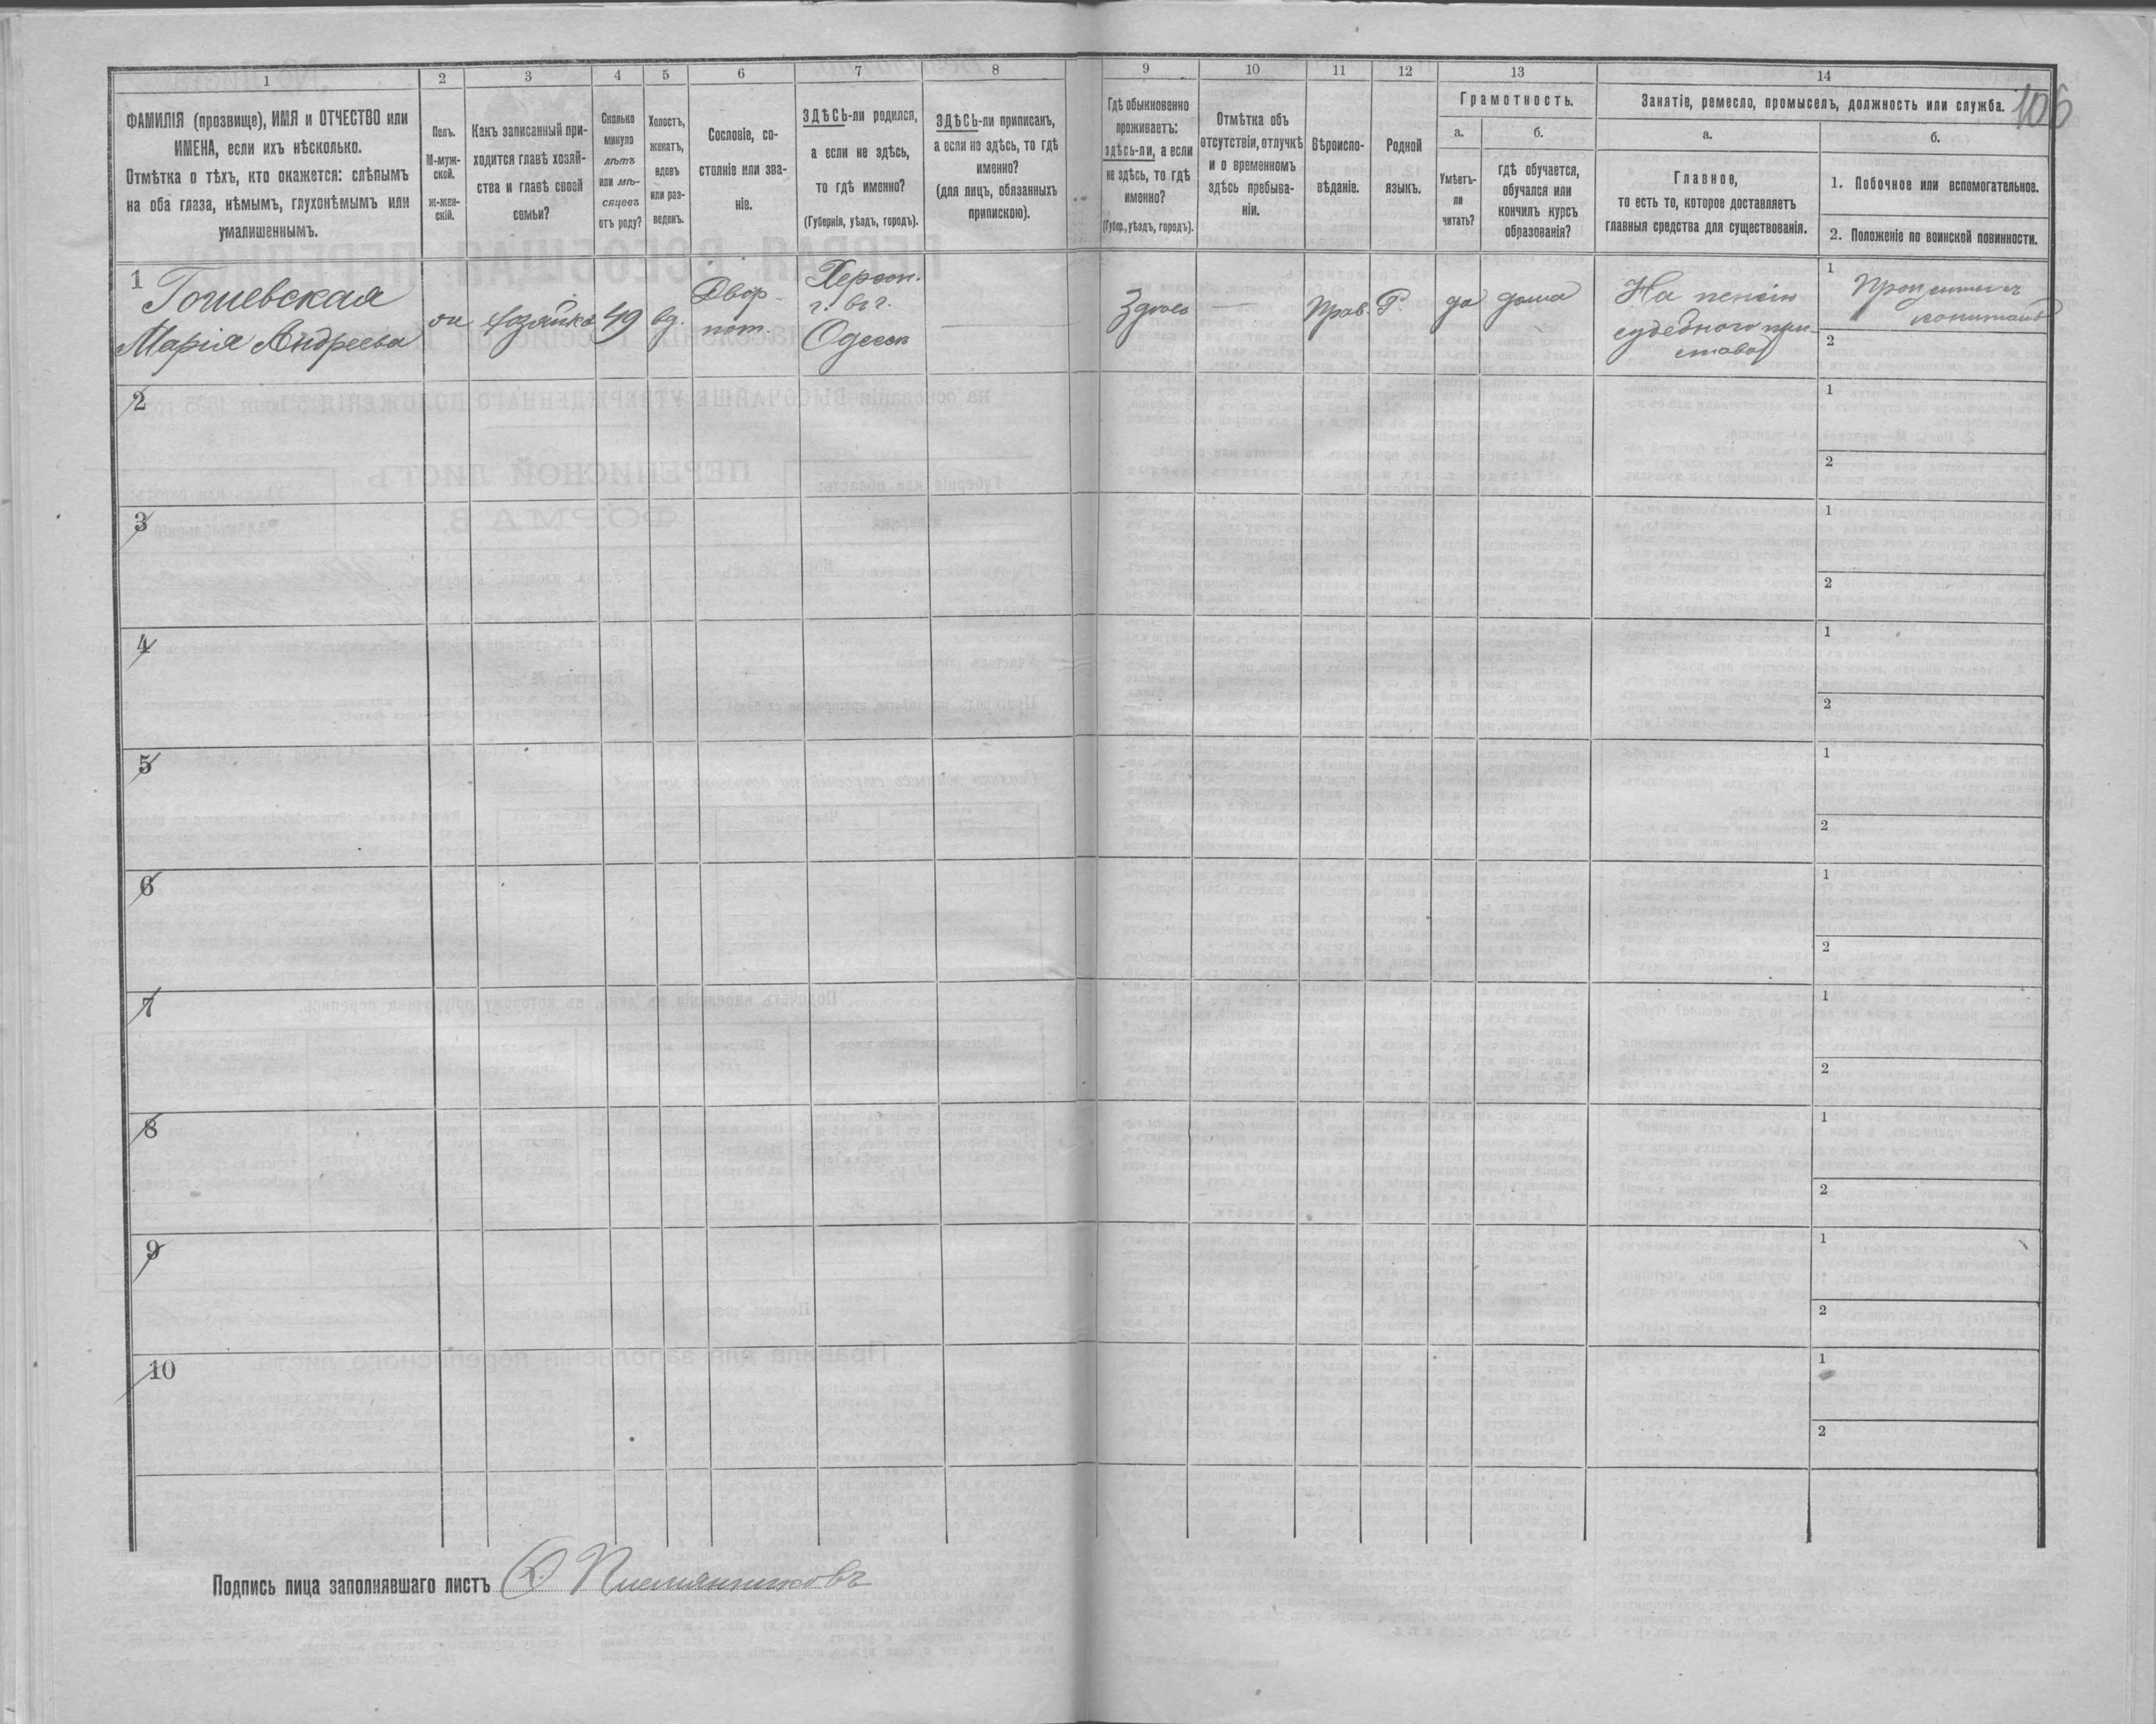 106
1 2 3 4 5 6 7 8 9 10 11 12 13 14
ФАМИЛІЯ (прозвище), ИМЯ и ОТЧЕСТВО или
ИМЕНА, если ихъ нѣсколько.
Отмѣтка о тѣхъ, кто окажется: слѣпымъ
на оба глаза, нѣмымъ, глухонѣмымъ или
умалишеннымъ.
Полъ.
М-муж-
ской.
ж-жен-
скій.
Какъ записанный при-
ходится главѣ хозяй-
ства и главѣ своей
семьи?
Сколько
минуло
лѣтъ
или мѣ-
сяцевъ
отъ роду?
Холостъ,
женатъ,
вдовъ
или раз-
веденъ.
Сословіе, со-
стояніе или зва-
ніе.
ЗДѢСЬ-ли родился,
а если не здѣсь,
то гдѣ именно?
(Губернія, уѣздъ, городъ).
ЗДѢСЬ-ли приписанъ,
а если не здѣсь, то гдѣ
именно?
(для лицъ, обязанныхъ
припискою).
Гдѣ обыкновенно
проживаетъ:
здѣсь-ли, а если
не здѣсь, то гдѣ
именно?
(Губер., уѣздъ, городъ).
Отмѣтка объ
отсутствіи, отлучкѣ
и о временномъ
здѣсь пребыва-
ніи.
Вѣроиспо-
вѣданіе.
Родной
языкъ.
Грамотность.
а.
Умѣетъ-
ли
читать?
б.
гдѣ обучается,
обучался или
кончилъ курсъ
образованія?
Занятіе, ремесло, промыселъ, должность или служба.
а.
Главное,
то есть то, которое доставляетъ
главныя средства для существованія.
б.
1. Побочное или вспомогательное.
2. Положеніе по воинской повинности.
1
Марія Андреева
хозяйка
49
вд.
Двор.
пот.
Херсон.
г. въ г.
Одесса
Здѣсь
Прав.
Р.
да
дома
На пенсію
судебного при
става
1
2
2
1
2
3
1
2
4
1
2
5
1
2
6
1
2
7
1
2
8
1
2
9
1
2
10
1
2
Подпись лица заполнявшаго листъ